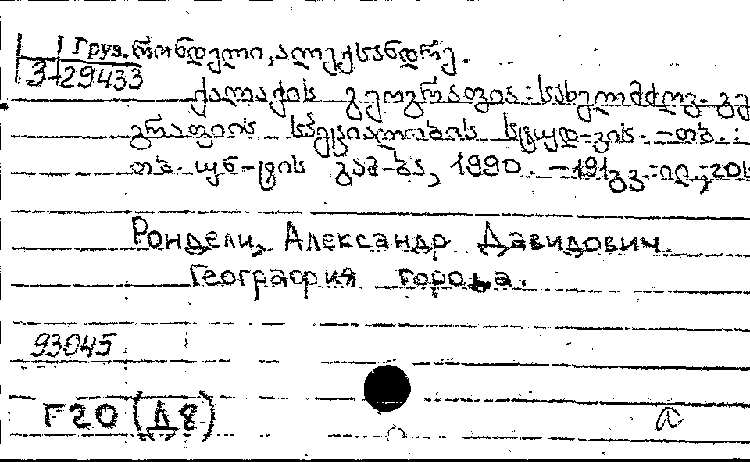 Груз. რონდელი, ალექსანდრე.
3-29433
ქალაქის გეოგრაფია: სახელმძღვ. გე
გრაფიის სპეციალობის სტუდ-ვის. - თბ.:
თბ. უნ-ტის გამ-ბა, 1990. - 191 გვ.: ილ.; 20
Рондели, Александр Давидович.
География города.
93045
Г20 (Д8)
а